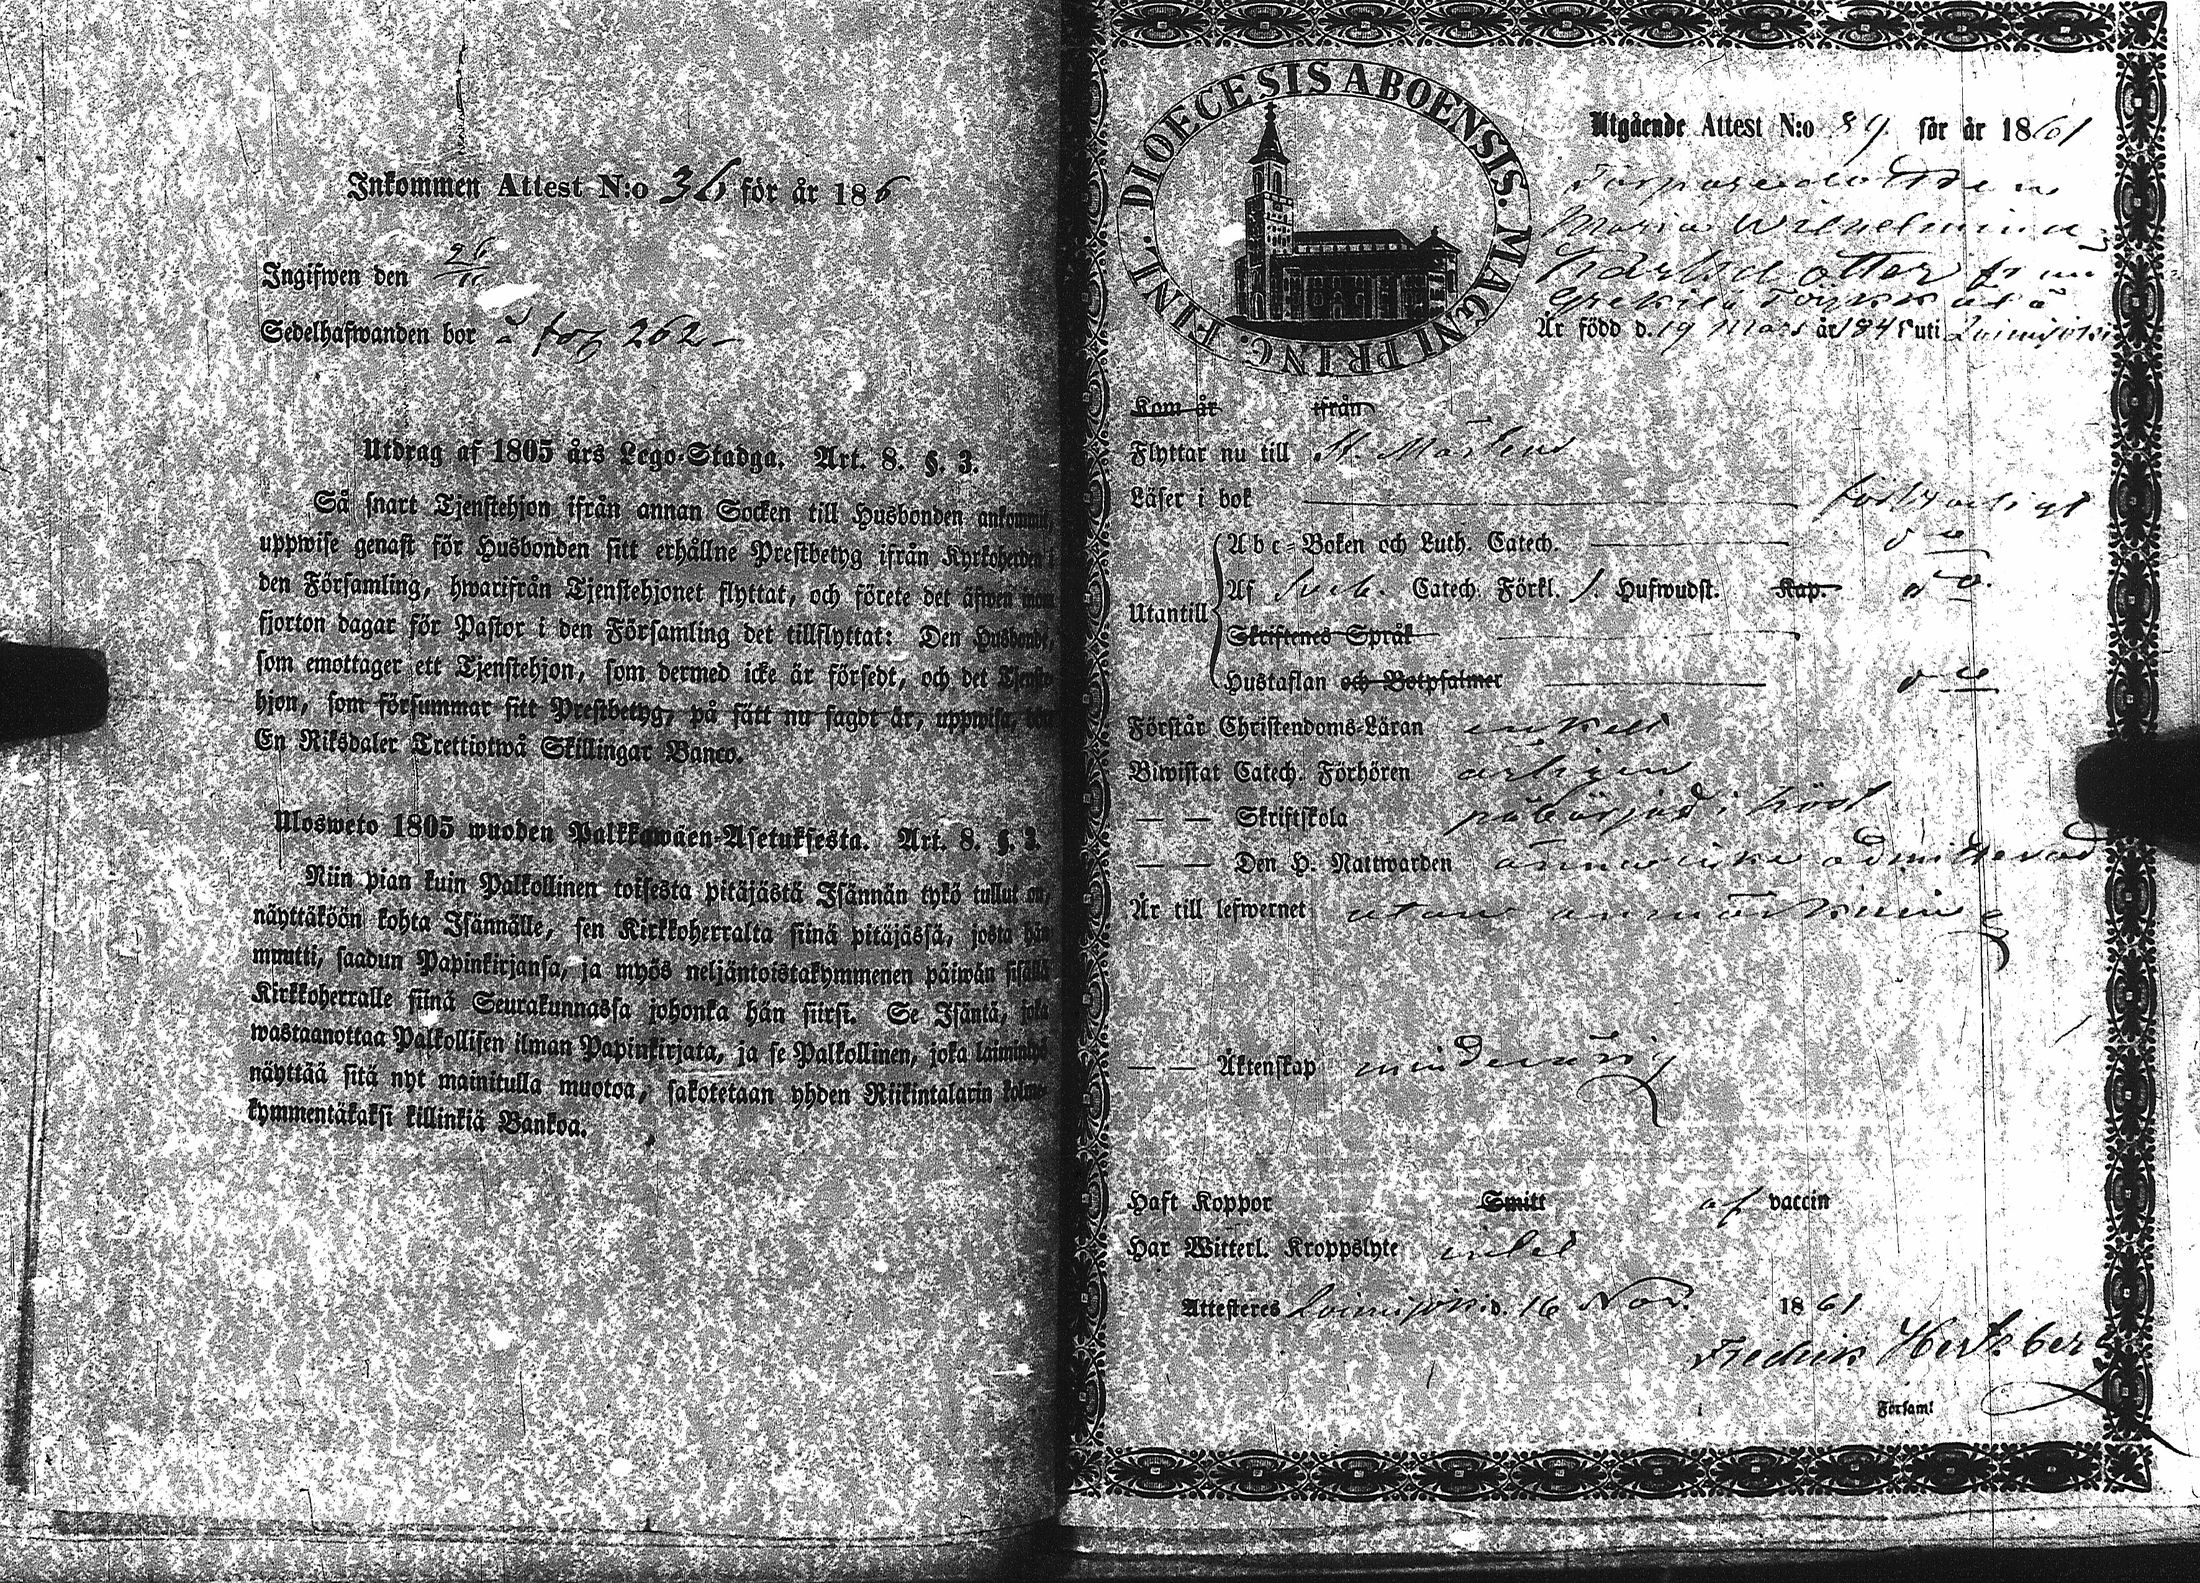 Inkommen Attest N:o 36 för år 186
Ingifwen den 26/11
Sedelhafwanden bor å pag 262
Utdrag af 1805 års Lego-Stadga. Art. 8. §. 3.
Så snart Tjenstehjon ifrån annan Socken till Husbonden ankommit,
uppwise genast för Husbonden sitt erhållne Prestbetyg ifrån Kyrkoherden i
den Församling, hwarifrån Tjenstehjonet flyttat, och förete det äfwen inom
fjorton dagar för Pastor i den Församling det tillflyttat: Den Husbonde,
som emottager ett Tjenstehjon, som dermed icke är försedt, och det Tjenste-
hjon, som försummar sitt Prestbetyg, på sätt nu sagdt är, uppwisa,
En Riksdaler Trettiotwå Skillingar Banco.
Ulosweto 1805 wuoden Palkkawäen-Asetuksesta. Art. 8. §. 3.
Niin pian kuin Palkollinen toisesta pitäjästä Isännän tykö tullut on,
näyttäköön kohta Isännälle, sen Kirkkoherralta siinä pitäjässä, josta hän
muutti, saadun Papinkirjansa, ja myös neljäntoistakymmenen päiwän sisällä
Kirkkoherralle siinä Seurakunnassa johonka hän siirsi. Se Isäntä, joka
wastaanottaa Palkollisen ilman Papinkirjata, ja se Palkollinen, joka laiminlyö
näyttää sitä nyt mainitulla muotoa, sakotetaan yhden Riikintalarin kolme-
kymmentäkaksi killinkiä Bankoa.
DIOECESIS ABOENSIS. MAGNI PRINC. FINL.
Utgående Attest N:o 89 för år 1861
Torparedottren
Maria Wilhelmina
Karlsdotter från
Är född d. 19 Mars år 184 uti Loimijoki
Kom år ifrån
Flyttar nu till St. Mårtens
Läser i bok förswarligt
Abc-Boken och Luth. Catech. do
Utantill Af Sveb. Catech. Förkl. Hufwudst. Kap. do
Skriftenes Språk
Hustaflan och Botpsalmer do
Förstår Christendoms-Läran enkelt
Biwistat Catech. Förhören årligen
— — Skriftskola påbörjad i höst
— — Den H. Nattwarden ännu icke admitterad
Är till lefwernet utan anmärkning
— — Äktenskap minderårig
Haft Koppor Smitt af vaccin
Har Witterl. Kroppslyte intet
Attesteres Loimijoki d. 16 Nov. 1861
Fredrik Hertzberg
i Församl